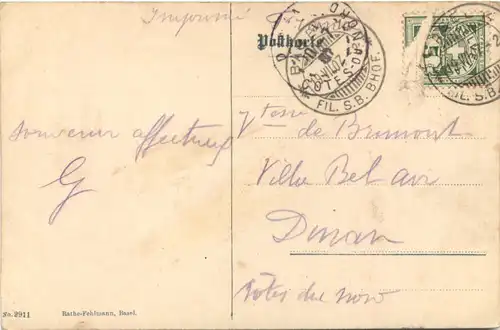 Imprimé
Postkarte
FIL. S.B. BHOF.
FIL. S.B. BHOF.
souvenir affectueux
G
Vtesse de Bremont
Villa Bel air
Dinan
Côtes du nord
No. 2911
Rathe-Fehlmann, Basel.